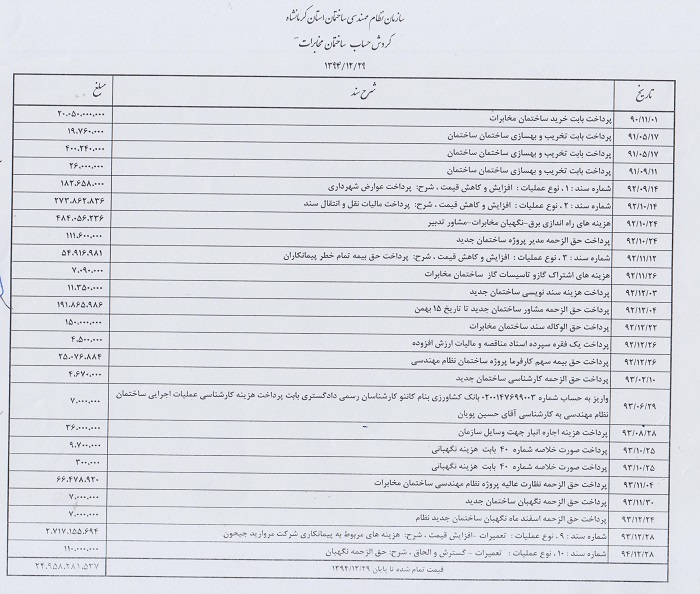 سازمان نظام مهندسی ساختمان استان کرمانشاه
گردش حساب ساختمان مخابرات
۱۳۹۴/۱۲/۲۹
تاریخ شرح سند مبلغ
۹۰/۱۱/۰۱ پرداخت بابت خرید ساختمان مخابرات ۲۰.۰۵۰.۰۰۰.۰۰۰
۹۱/۰۵/۱۷ پرداخت بابت تخریب و بهسازی ساختمان ساختمان ۱۹.۷۶۰.۰۰۰
۹۱/۰۵/۱۷ پرداخت بابت تخریب و بهسازی ساختمان ساختمان ۴۰۰.۲۴۰.۰۰۰
۹۱/۰۹/۱۱ پرداخت بابت تخریب و بهسازی ساختمان ساختمان ۲۶.۰۰۰.۰۰۰
۹۲/۰۹/۱۴ شماره سند : ۱ ، نوع عملیات : افزایش و کاهش قیمت ، شرح: پرداخت عوارض شهرداری ۱۸۲.۶۵۸.۰۰۰
۹۲/۱۰/۱۴ شماره سند : ۲ ، نوع عملیات : افزایش و کاهش قیمت ، شرح: پرداخت مالیات نقل و انتقال سند ۲۷۳.۸۶۲.۸۳۶
۹۲/۱۰/۲۴ هزینه های راه اندازی برق-نگهبان مخابرات-مشاور تدبیر ۴۸۴.۰۵۶.۲۳۶
۹۲/۱۰/۲۴ پرداخت حق الزحمه مدیر پروژه ساختمان جدید ۱۱۱.۶۰۰.۰۰۰
۹۲/۱۱/۱۲ شماره سند : ۳ ، نوع عملیات : افزایش و کاهش قیمت ، شرح: پرداخت حق بیمه تمام خطر پیمانکاران ۵۴.۹۱۶.۹۸۱
۹۲/۱۱/۲۶ هزینه های اشتراک گازو تاسیسات گاز ساختمان مخابرات ۷.۰۹۰.۰۰۰
۹۲/۱۲/۰۳ پرداخت هزینه سند نویسی ساختمان جدید ۱۱.۳۵۰.۰۰۰
۹۲/۱۲/۰۴ پرداخت حق الزحمه مشاور ساختمان جدید تا تاریخ ۱۵ بهمن ۱۹۱.۸۶۵.۹۸۶
۹۲/۱۲/۲۲ پرداخت حق الوکاله سند ساختمان مخابرات ۱۵۰.۰۰۰.۰۰۰
۹۲/۱۲/۲۶ پرداخت یک فقره سپرده اسناد مناقصه و مالیات ارزش افزوده ۴.۵۰۰.۰۰۰
۹۲/۱۲/۲۶ پرداخت حق بیمه سهم کارفرما پروژه ساختمان نظام مهندسی ۲۵.۰۷۶.۸۸۴
۹۳/۰۲/۱۰ پرداخت حق الزحمه کارشناسی ساختمان جدید ۴.۶۷۰.۰۰۰
۹۳/۰۶/۲۹ واریز به حساب شماره ۰۲۰۰۱۴۷۶۹۹۰۰۳ بانک کشاورزی بنام کانئو کارشناسان رسمی دادگستری بابت پرداخت هزینه کارشناسی عملیات اجرایی ساختمان ۷.۰۰۰.۰۰۰
نظام مهندسی به کارشناسی آقای حسین پویان
۹۳/۰۸/۲۸ پرداخت هزینه اجاره انبار جهت وسایل سازمان ۳۶.۰۰۰.۰۰۰
۹۳/۱۰/۲۵ پرداخت صورت خلاصه شماره ۴۰ بابت هزینه نگهبانی ۹.۷۰۰.۰۰۰
۹۳/۱۰/۲۵ پرداخت صورت خلاصه شماره ۴۰ بابت هزینه نگهبانی ۳۰۰.۰۰۰
۹۳/۱۱/۰۴ پرداخت حق الزحمه نظارت عالیه پروژه نظام مهندسی ساختمان مخابرات ۶۶.۴۷۸.۹۲۰
۹۳/۱۱/۳۰ پرداخت حق الزحمه نگهبان ساختمان جدید ۷.۰۰۰.۰۰۰
۹۳/۱۲/۲۴ پرداخت حق الزحمه اسفند ماه نگهبان ساختمان جدید نظام ۷.۰۰۰.۰۰۰
۹۳/۱۲/۲۸ شماره سند : ۹ ، نوع عملیات : تعمیرات -افزایش قیمت ، شرح: هزینه های مربوط به پیمانکاری شرکت مروارید جیحون ۲.۷۱۷.۱۵۵.۶۹۴
۹۴/۱۲/۲۸ شماره سند : ۱۰ ، نوع عملیات : تعمیرات - گسترش و الحاق ، شرح: حق الزحمه نگهبان ۱۱۰.۰۰۰.۰۰۰
قیمت تمام شده تا پایان ۱۳۹۴/۱۲/۲۹ ۲۴.۹۵۸.۲۸۱.۵۳۷